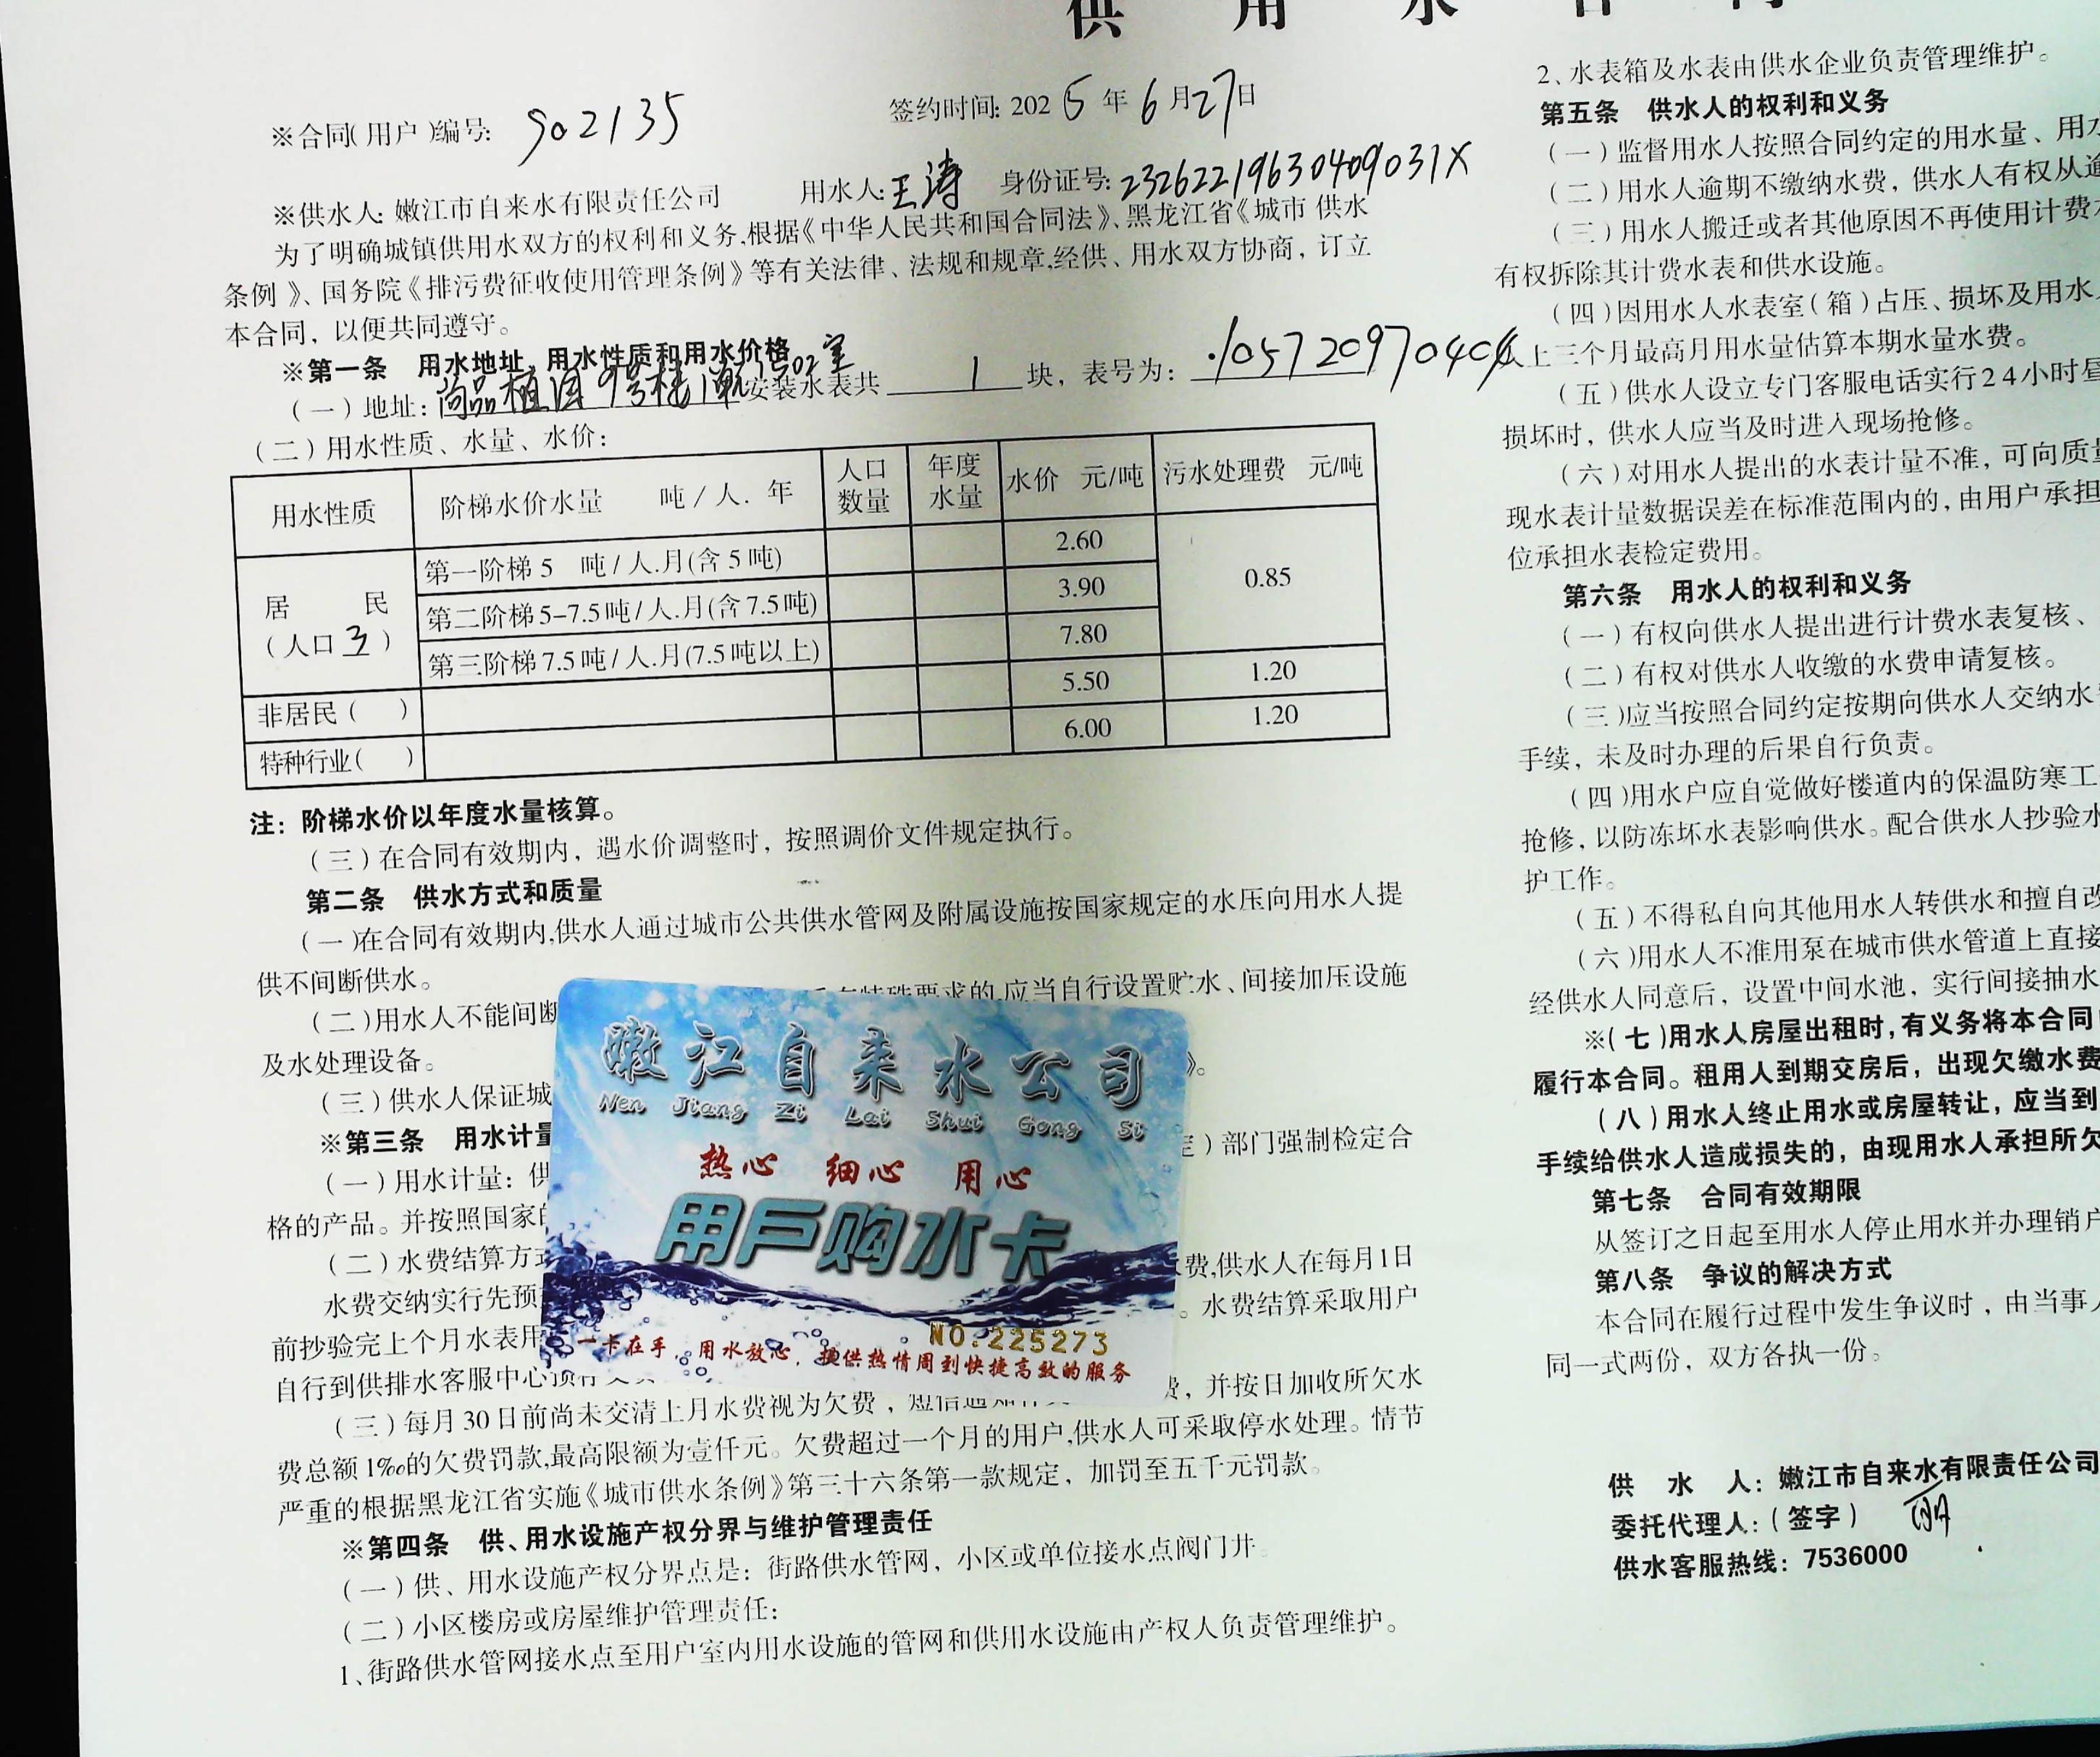 供用水合同
※合同(用户)编号: 902135
签约时间: 2025年6月27日
※供水人: 嫩江市自来水有限责任公司 用水人: 王涛 身份证号: 23262219630409031X
为了明确城镇供用水双方的权利和义务,根据《中华人民共和国合同法》、黑龙江省《城市 供水
条例》、国务院《排污费征收使用管理条例》等有关法律、法规和规章,经供、用水双方协商，订立
本合同，以便共同遵守。
※第一条 用水地址、用水性质和用水价格
(一)地址: 尚品 9号楼 02室 安装水表共 1 块，表号为: 105720970404
(二)用水性质、水量、水价:
用水性质 阶梯水价水量 吨/人. 年 人口数量 年度水量 水价 元/吨 污水处理费 元/吨
居 民 (人口 3 )
第一阶梯5 吨/人.月(含5吨) 2.60 0.85
第二阶梯5-7.5吨/人.月(含7.5吨) 3.90
第三阶梯7.5吨/人.月(7.5吨以上) 7.80
非居民( ) 5.50 1.20
特种行业( ) 6.00 1.20
注: 阶梯水价以年度水量核算。
(三)在合同有效期内，遇水价调整时，按照调价文件规定执行。
第二条 供水方式和质量
(一)在合同有效期内,供水人通过城市公共供水管网及附属设施按国家规定的水压向用水人提
供不间断供水。
(二)用水人不能间断 有特殊要求的,应当自行设置贮水、间接加压设施
及水处理设备。
(三)供水人保证城 》。
※第三条 用水计量
(一)用水计量: 供 )部门强制检定合
格的产品。并按照国家
(二)水费结算方式
水费交纳实行先预 费,供水人在每月1日
前抄验完上个月水表用 。水费结算采取用户
自行到供排水客服中心预存
(三)每月30日前尚未交清上月水费视为欠费，短信通知 费，并按日加收所欠水
费总额1‰的欠费罚款,最高限额为壹仟元。欠费超过一个月的用户,供水人可采取停水处理。情节
严重的根据黑龙江省实施《城市供水条例》第三十六条第一款规定，加罚至五千元罚款。
※第四条 供、用水设施产权分界与维护管理责任
(一)供、用水设施产权分界点是: 街路供水管网，小区或单位接水点阀门井
(二)小区楼房或房屋维护管理责任:
1、街路供水管网接水点至用户室内用水设施的管网和供用水设施由产权人负责管理维护。
嫩江自来水公司
Nen Jiang Zi Lai Shui Gong Si
热心 细心 用心
用户购水卡
NO.225273
一卡在手，用水放心，提供热情周到快捷高效的服务
2、水表箱及水表由供水企业负责管理维护。
第五条 供水人的权利和义务
(一)监督用水人按照合同约定的用水量、用水
(二)用水人逾期不缴纳水费，供水人有权从逾
(三)用水人搬迁或者其他原因不再使用计费水
有权拆除其计费水表和供水设施。
(四)因用水人水表室(箱)占压、损坏及用水人
以上三个月最高月用水量估算本期水量水费。
(五)供水人设立专门客服电话实行24小时昼
损坏时，供水人应当及时进入现场抢修。
(六)对用水人提出的水表计量不准，可向质量
现水表计量数据误差在标准范围内的,由用户承担
位承担水表检定费用。
第六条 用水人的权利和义务
(一)有权向供水人提出进行计费水表复核、
(二)有权对供水人收缴的水费申请复核。
(三)应当按照合同约定按期向供水人交纳水
手续，未及时办理的后果自行负责。
(四)用水户应自觉做好楼道内的保温防寒工
抢修,以防冻坏水表影响供水。配合供水人抄验水
护工作。
(五)不得私自向其他用水人转供水和擅自改
(六)用水人不准用泵在城市供水管道上直接
经供水人同意后，设置中间水池，实行间接抽水
※(七)用水人房屋出租时,有义务将本合同
履行本合同。租用人到期交房后，出现欠缴水费
(八)用水人终止用水或房屋转让，应当到
手续给供水人造成损失的，由现用水人承担所欠
第七条 合同有效期限
从签订之日起至用水人停止用水并办理销户
第八条 争议的解决方式
本合同在履行过程中发生争议时，由当事人
同一式两份，双方各执一份。
供 水 人: 嫩江市自来水有限责任公司
委托代理人:(签字)
供水客服热线: 7536000